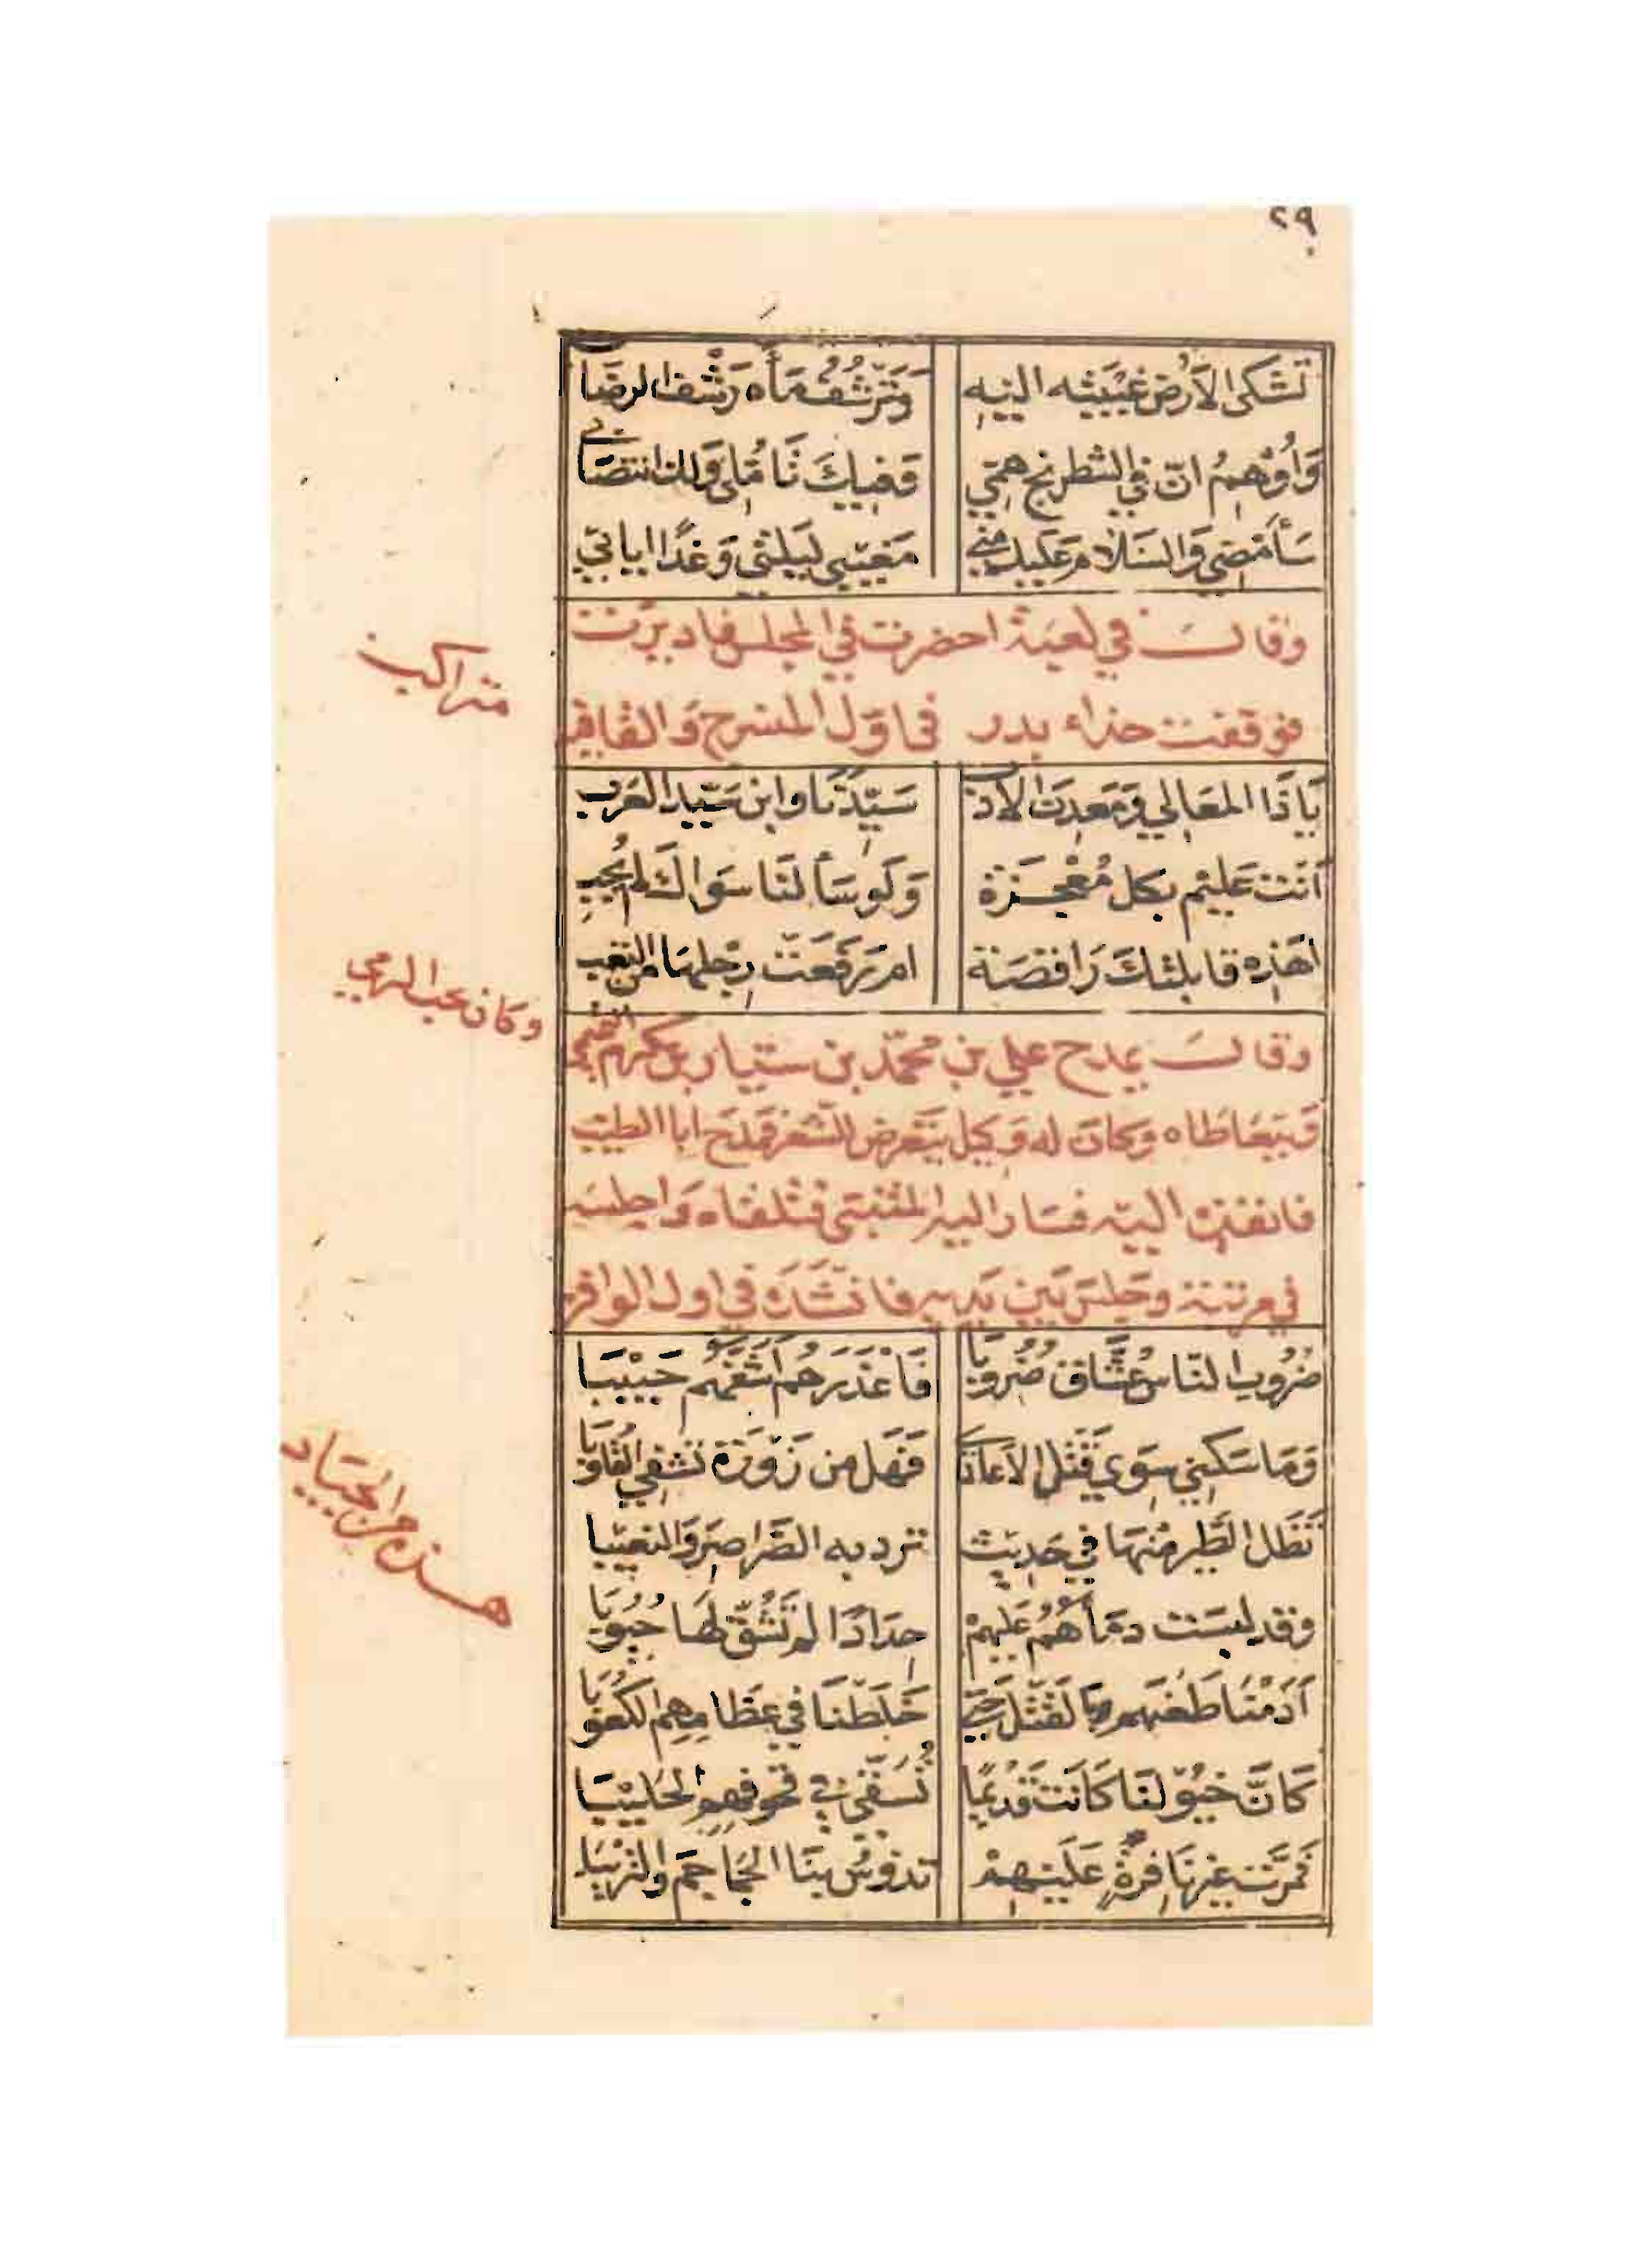 ٢٩
تَشَكى الاَرْض غيْبَته اليه وَتَرْشُفُ مَاءه رَشْف الرضَاب
وَاُوهِمُ انّ في الشطرنج همّي وَفيك تَامُّلي وَلك انتصَابي
سَأَمضي وَالسَلامُ عَليك مني مَغيبي لَيلتي وَغدًا ايابي
وقال في لعبة احضرت في المجلس فاديرت
فوقفت حذاء بدر في اول المنسرح وَالقافية
متراكب
يَا ذَا المعَالي وَمَعدِن الادب سَيّدنَا وابن سَيّد العَرب
اَنت عَليم بكل مُعْجزة وَلو سَألنَا سوَاك لم يُجب
اهَذه قابلتكَ رَاقصَة ام رَفَعت رِجلهَا من التعب
وقال يمدح علي بن محمّد بن سيار بن مكرم التميمي
وكان يحب الرمي
وَيتعَاطاه وكان له وَكيل يتعَرض للشعر فمدَح ابا الطيب
فانفذه اليه فسَار اليه المتنبي فتلقاه وَاجلسَه
في مرتبته وجَلسَ بَين يَديه فانشَدَه في اول الوافر
ضُرُوب النّاس عُشَّاق ضُرُوبَا فَاعْذَرهُم اَشَفّهُم حَبيْبَا
وَمَا سَكَني سِوَى قَتْل الاَعَادي فَهَل من زَوْرَة تشفي القُلوبَا
تَظَل الطَير مْنهَا في حَديث ترد به الصَراصِر وَالنعيبا
وقد لبسَت دمَاءهُمُ عَليهمْ حِدَادًا لم تَشُقّ لهَا جُيُوبَا
اَدَمْنَا طَعْنهم وَالقَتْل حَتّى خَلَطْنَا في عظَامهِم الكعُوبَا
كَانَّ خيُولنَا كَانَت قَديمًا تُسَقّى في قحوفهم الحَليْبَا
فمَرَّت غير نَافرَةٍ عَلَيهم تدُوسُ بنَا الجمَاجمَ وَالتريْبَا
هذه من الجيَاد